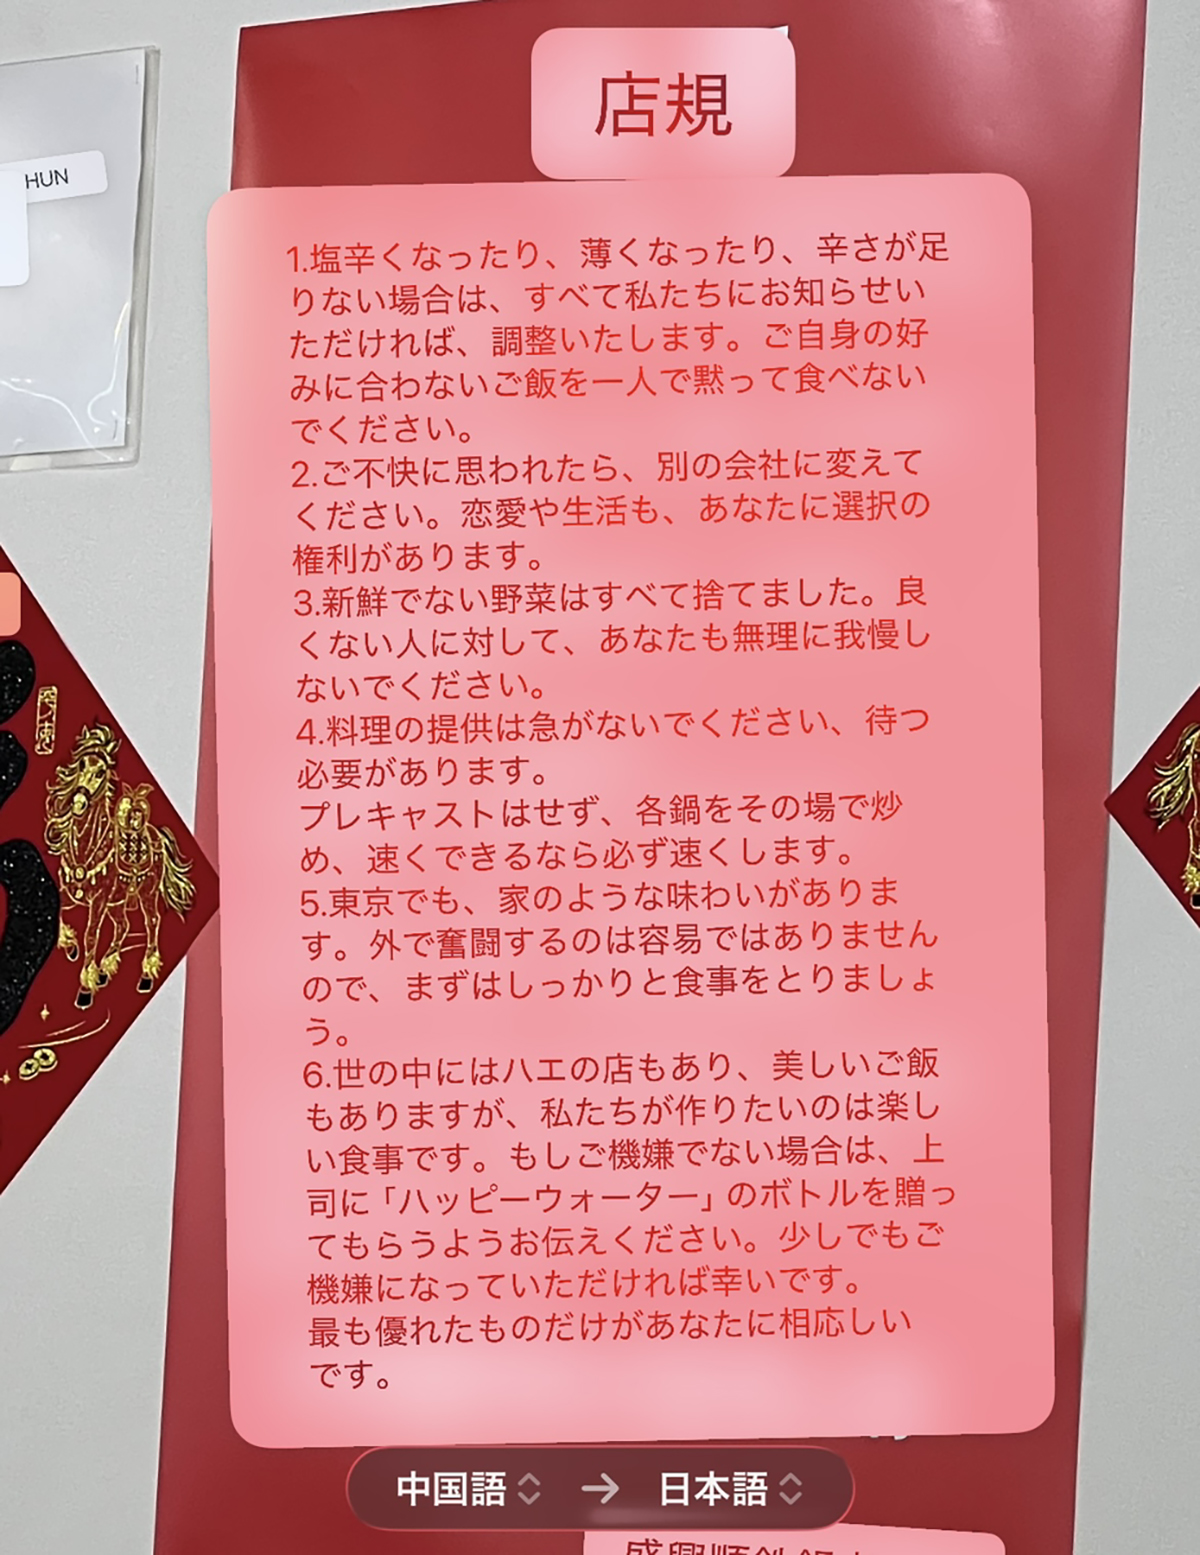 HUN
店規
1.塩辛くなったり、薄くなったり、辛さが足
りない場合は、すべて私たちにお知らせい
ただければ、調整いたします。ご自身の好
みに合わないご飯を一人で黙って食べない
でください。
2.ご不快に思われたら、別の会社に変えて
ください。恋愛や生活も、あなたに選択の
権利があります。
3.新鮮でない野菜はすべて捨てました。良
くない人に対して、あなたも無理に我慢し
ないでください。
4.料理の提供は急がないでください、待つ
必要があります。
プレキャストはせず、各鍋をその場で炒
め、速くできるなら必ず速くします。
5.東京でも、家のような味わいがありま
す。外で奮闘するのは容易ではありません
ので、まずはしっかりと食事をとりましょ
う。
6.世の中にはハエの店もあり、美しいご飯
もありますが、私たちが作りたいのは楽し
い食事です。もしご機嫌でない場合は、上
司に「ハッピーウォーター」のボトルを贈っ
てもらうようお伝えください。少しでもご
機嫌になっていただければ幸いです。
最も優れたものだけがあなたに相応しい
です。
中国語 → 日本語